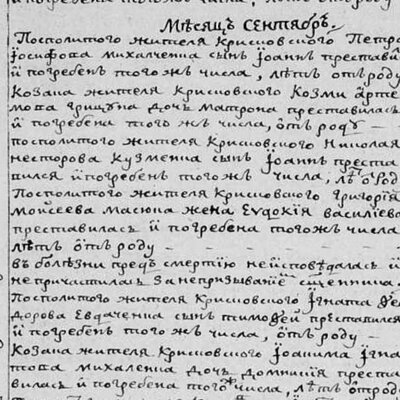 Мѣсяцъ Сентябрь.
Посполитого жителя Крисковского Петра
Іосифова михаленка сынъ Іоаннъ преставил
й погребенъ того жъ числа, лѣтъ отъ роду
Козака жителя Крисковского Козми арте
мова Грицуна дочь матрона преставилась
й погребена того жъ числа, отъ роду —
посполитого жителя Крисковского Николая
несторова Кузменка сынъ Іоаннъ преста
вился й погребенъ того жъ числа, лѣ отрод
Посполитого жителя Крисковского григорїя
Моисеева масюка жена Евдокїя василїева
преставилась й погребена того жъ числа
лѣтъ отъ роду
въ болѣзни предъ смертїю не исповѣдалась й
не причастилась за непризыванїе сщенника
Посполитого жителя Крисковского Ігната Ѳе
дорова Евдаченка сынъ тимоѳей преставился
й погребенъ того жъ числа, отъ роду —
Козака жителя Крисковского Іоакима Ігна
това михаленка дочь домникїя преста
вилась й погребена того жъ числа, лѣтъ отрод